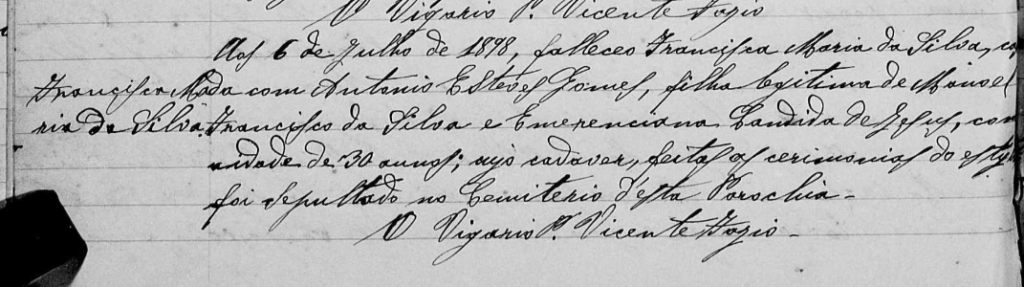 O Vigario P. Vicente Fozio
Aos 6 de Julho de 1898, falleceo Francisca Maria da Silva, ca
Francisca Ma
da com Antonio Esteves Gomes, filha legitima de Manoel
ria da Silva
Francisco da Silva e Emerenciana Candida de Jesus, com
a idade de 30 annos; cujo cadaver, feitas as cerimonias do estylo
foi sepultado no Cemiterio d'esta Parochia -
O Vigario P. Vicente Fozio -